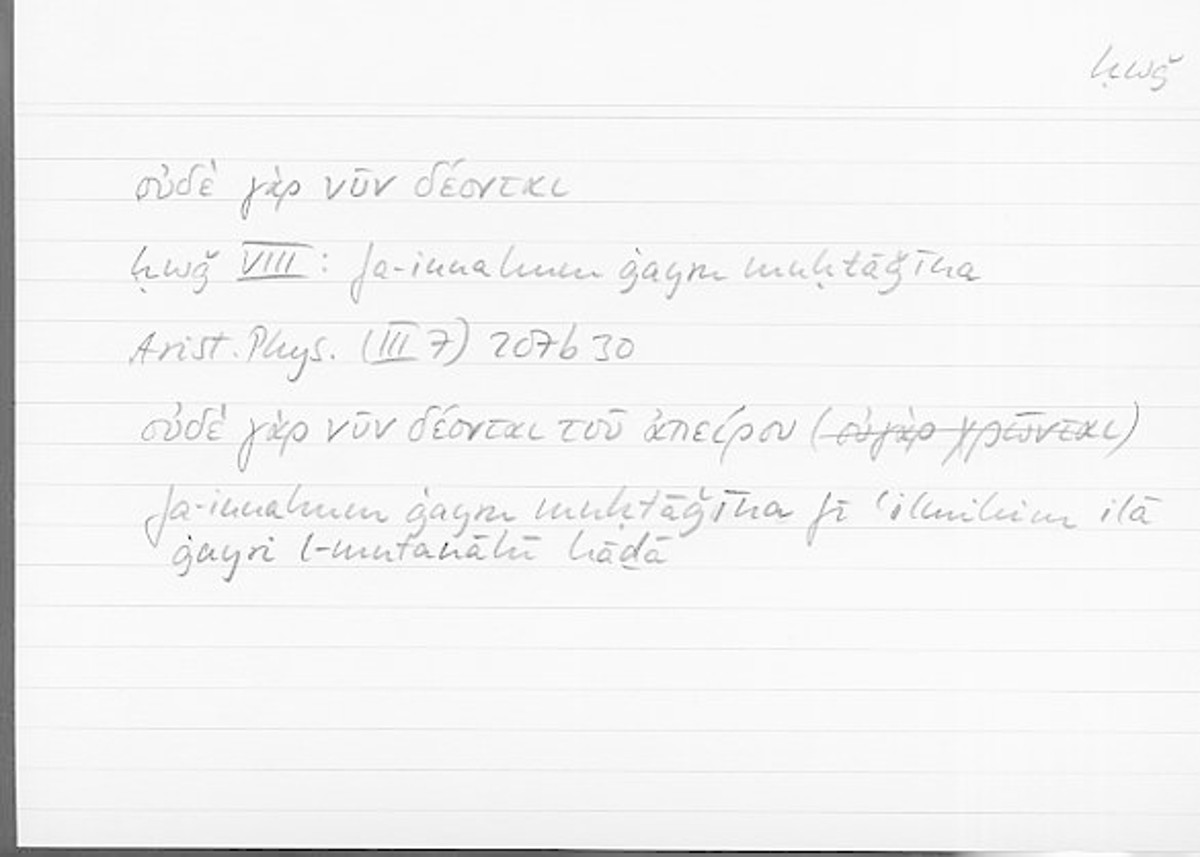 ḥwǧ
οὐδὲ γὰρ νῦν δέονται
ḥwǧ VIII: fa-innahum ġayru muḥtāǧīna
Arist. Phys. (III 7) 207b 30
οὐδὲ γὰρ νῦν δέονται τοῦ ἀπείρου (οὐ γὰρ χρῶνται)
fa-innahum ġayru muḥtāǧīna fī ʿilmihim ilā
ġayri l-mutanāhī hāḏā